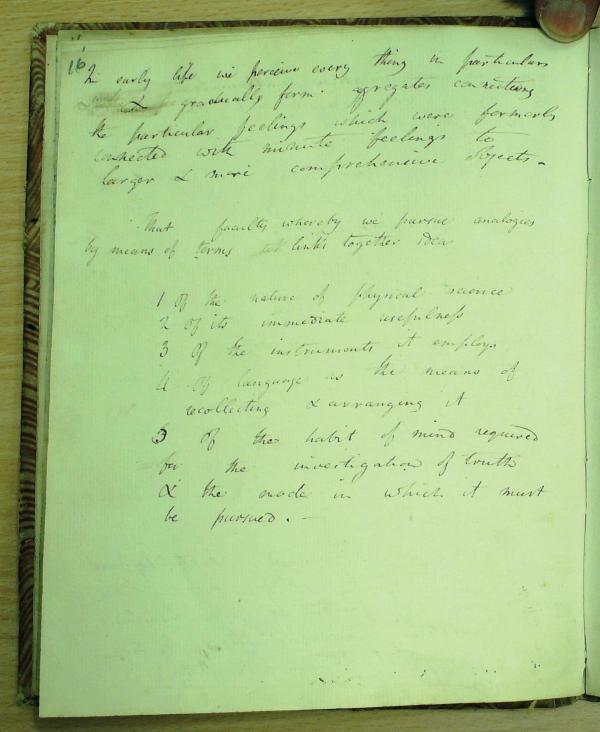 16
In early life we perceive every thing in particulars
& gradually form agregates connecting
the particular feelings which were formerly
connected with minute feelings to
larger & more comprehensive objects. -
That faculty whereby we pursue analogies
by means of terms links together ideas
1 Of the nature of physical science
2 of its immediate usefulness
3 Of the instruments it employs
4 Of language as the means of
recollecting & arranging it
5 Of the habit of mind required
for the investigation of truth
& the mode in which it must
be pursued. -